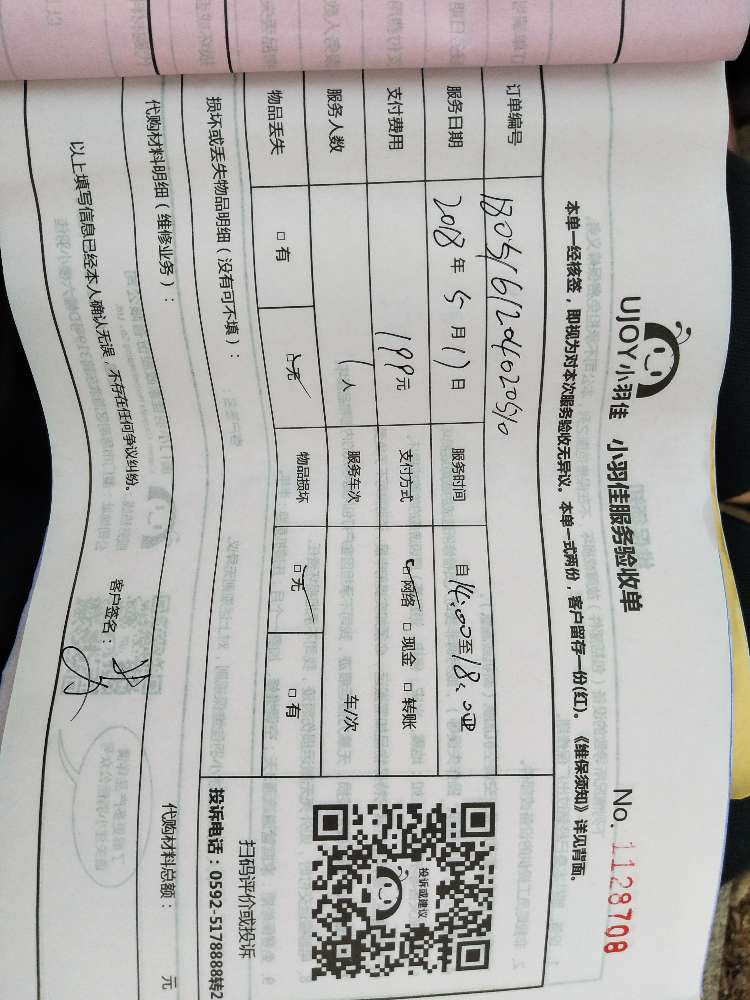 UJOY小羽佳 小羽佳服务验收单 No. 1128708
本单一经核签，即视为对本次服务验收无异议。本单一式两份，客户留存一份(红)。《维保须知》详见背面。
订单编号 1805161204020510
服务日期 2018年5月17日 服务时间 自14:00至18:00
支付费用 199元 支付方式 网络 □现金 □转账
服务人数 1人 服务车次 车/次
物品丢失 □有 □无 物品损坏 □无 □有
损坏或丢失物品明细（没有可不填）：
代购材料明细（维修业务）： 代购材料总额： 元
以上填写信息已经本人确认无误，不存在任何争议纠纷。 客户签名：
投诉或建议
扫码评价或投诉
投诉电话：0592-5178888转2